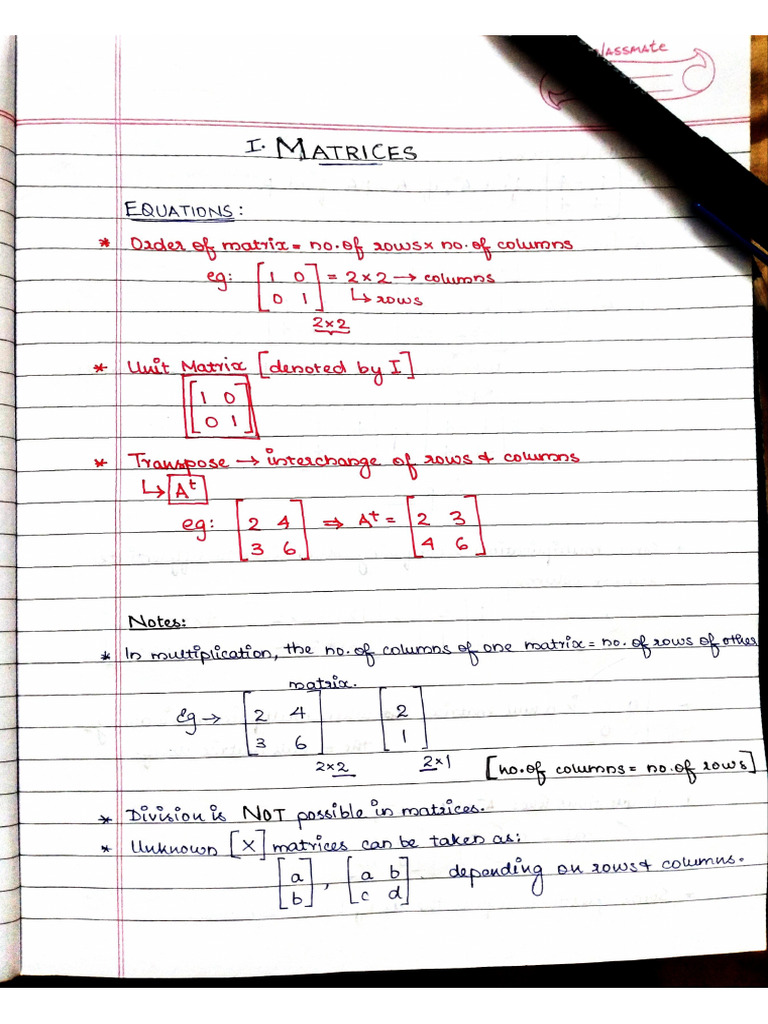 classmate
I. MATRICES
EQUATIONS:
* Order of matrix = no. of rows × no. of columns
eg: [1 0 = 2×2 → columns
0 1] ↳ rows
2×2
* Unit Matrix [denoted by I]
[1 0
0 1]
* Transpose → interchange of rows & columns
↳ Aᵗ
eg: [2 4 ⇒ Aᵗ = [2 3
3 6] 4 6]
Notes:
* In multiplication, the no. of columns of one matrix = no. of rows of other
matrix.
Eg → [2 4 [2
3 6] 1]
2×2 2×1 [no. of columns = no. of rows]
* Division is NOT possible in matrices.
* Unknown [X] matrices can be taken as:
[a , [a b . depending on rows & columns.
b] c d]